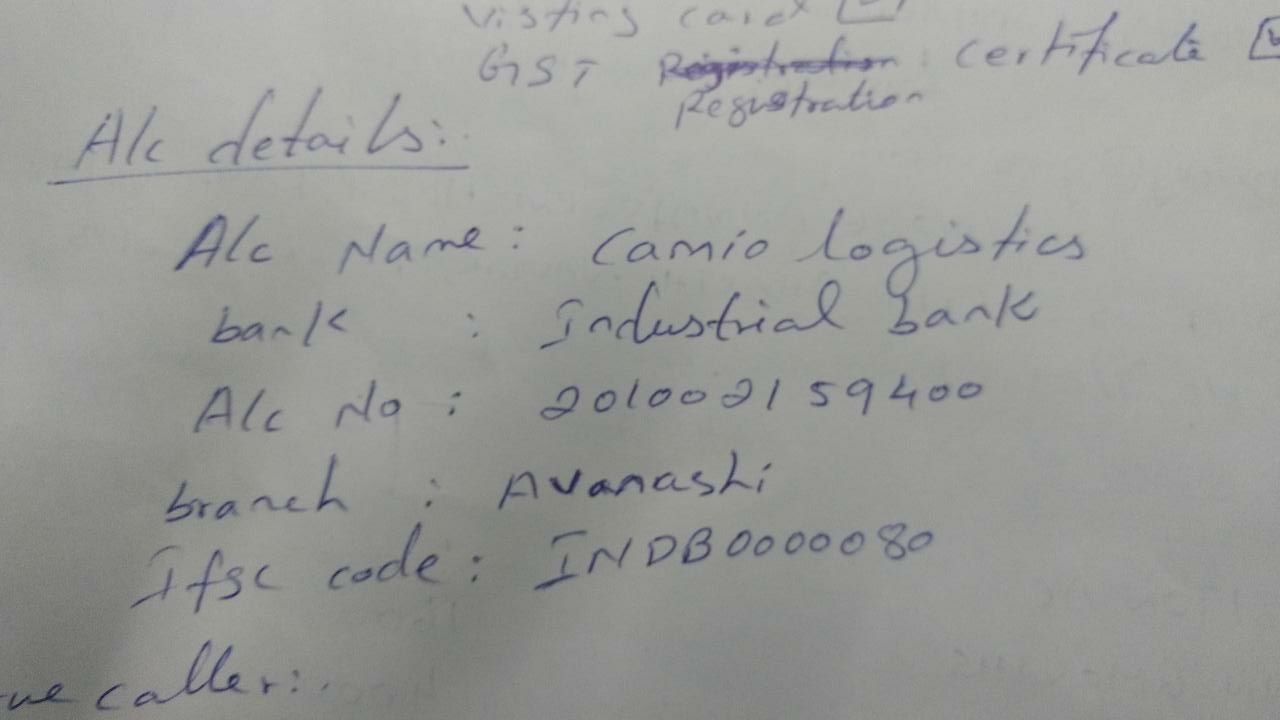 Visting card
GST Registration certificate
Registration
A/c details:
A/c Name: Camio logistics
bank : Industrial bank
A/c No : 201002159400
branch : Avanashi
Ifsc code : INDB0000080
caller: